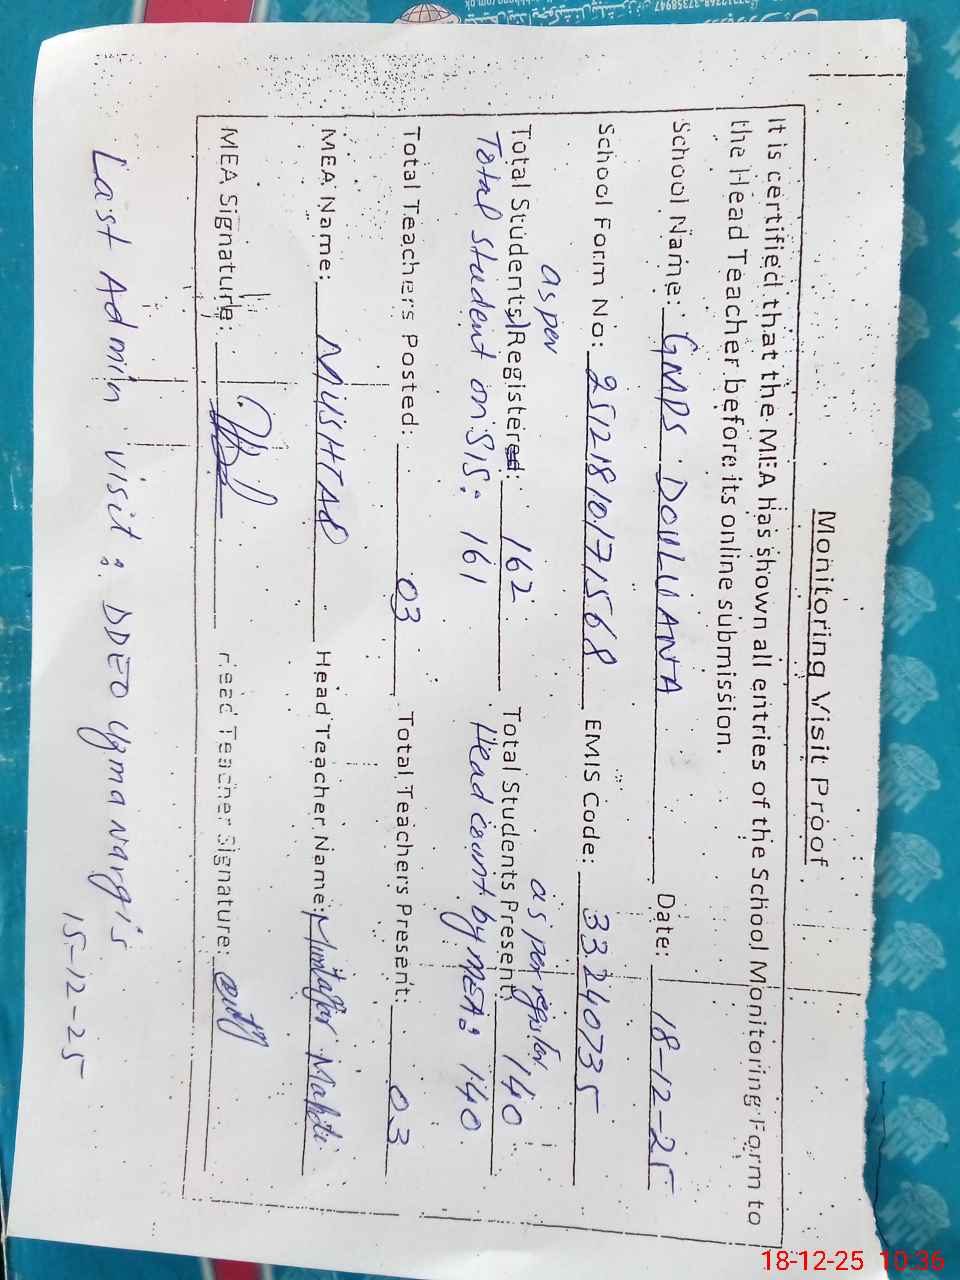 Monitoring Visit Proof
It is certified that the MEA has shown all entries of the School Monitoring Form to
the Head Teacher before its online submission.
School Name: GMPS DOULUANA Date: 18-12-25
School Form No: 25121810171568 EMIS Code: 33240735
as per as per register
Total Students Registered: 162 Total Students Present: 140
Total student on SIS: 161 Head count by MEA: 140
Total Teachers Posted: 03 Total Teachers Present: 03
MEA Name: MUSHTAQ Head Teacher Name: Mahdi
MEA Signature: Head Teacher Signature:
Last Admin visit: DDEO Uzma Nargis
15-12-25
18-12-25 10:36